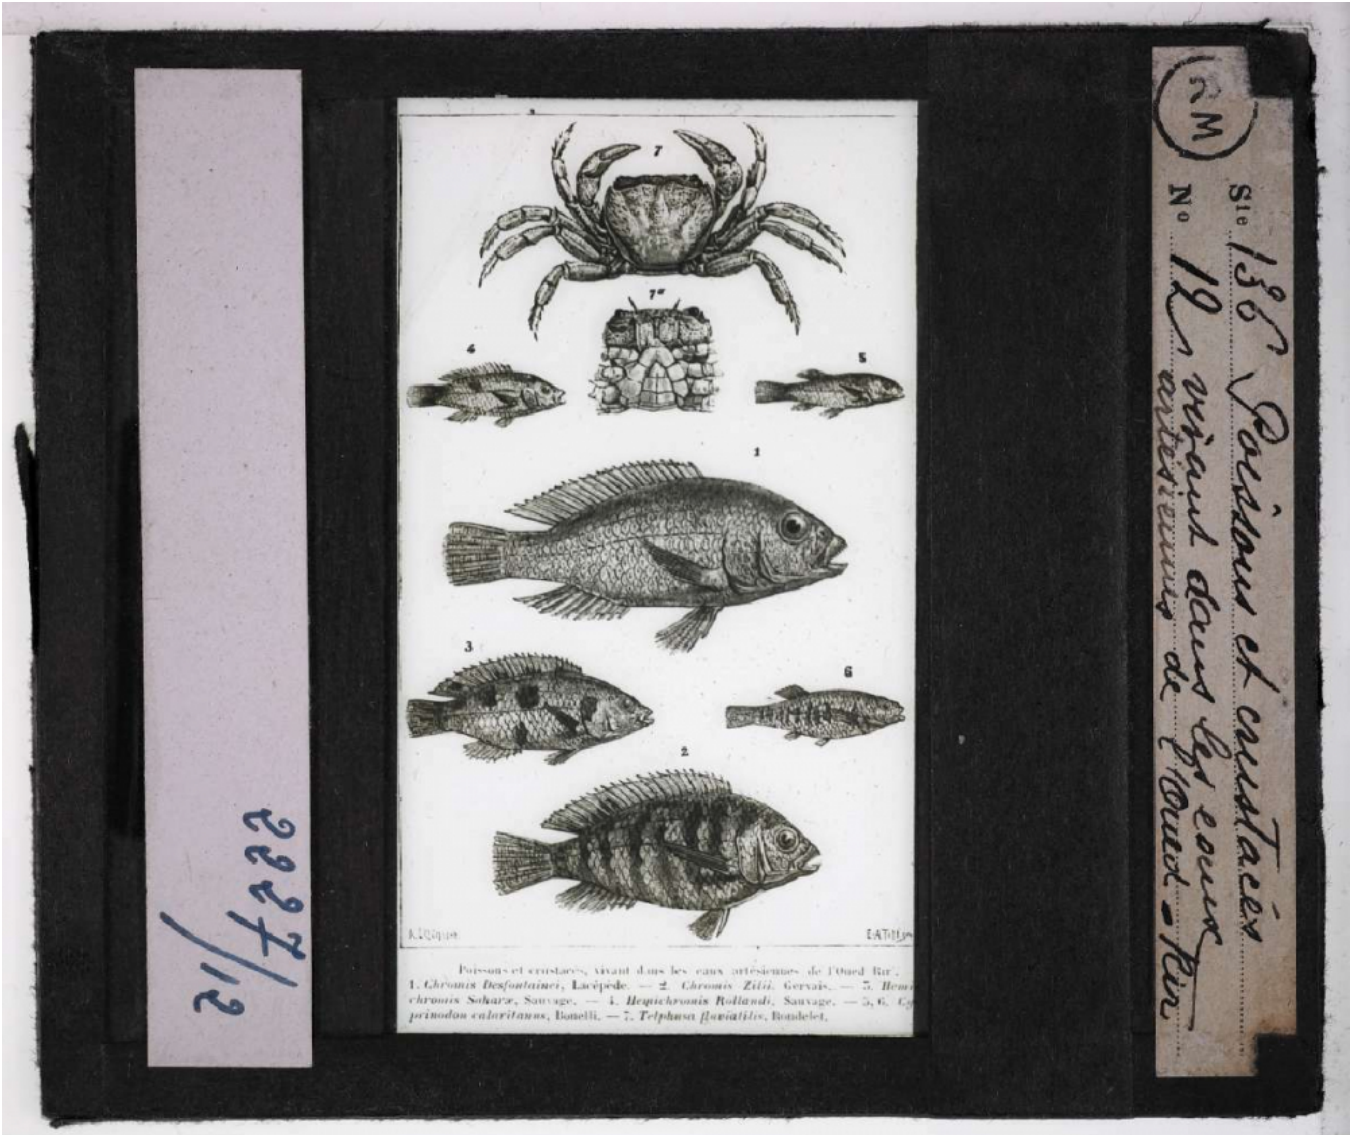 2227
/12
7
7a
4
5
1
3
6
2
Poissons et crustacés, vivant dans les eaux artésiennes de l'Oued Rir'.
1. Chromis Desfontainei, Lacépède. — 2. Chromis Zilii, Gervais. — 3. Hemi
chromis Saharæ, Sauvage. — 4. Hemichromis Rollandi, Sauvage. — 5, 6. Cy
prinodon calaritanus, Bonelli. — 7. Telphusa fluviatilis, Rondelet.
RM
Sie 136 Poissons et crustacés
No 12 vivant dans les eaux
artésiennes de l'Oued-Rir